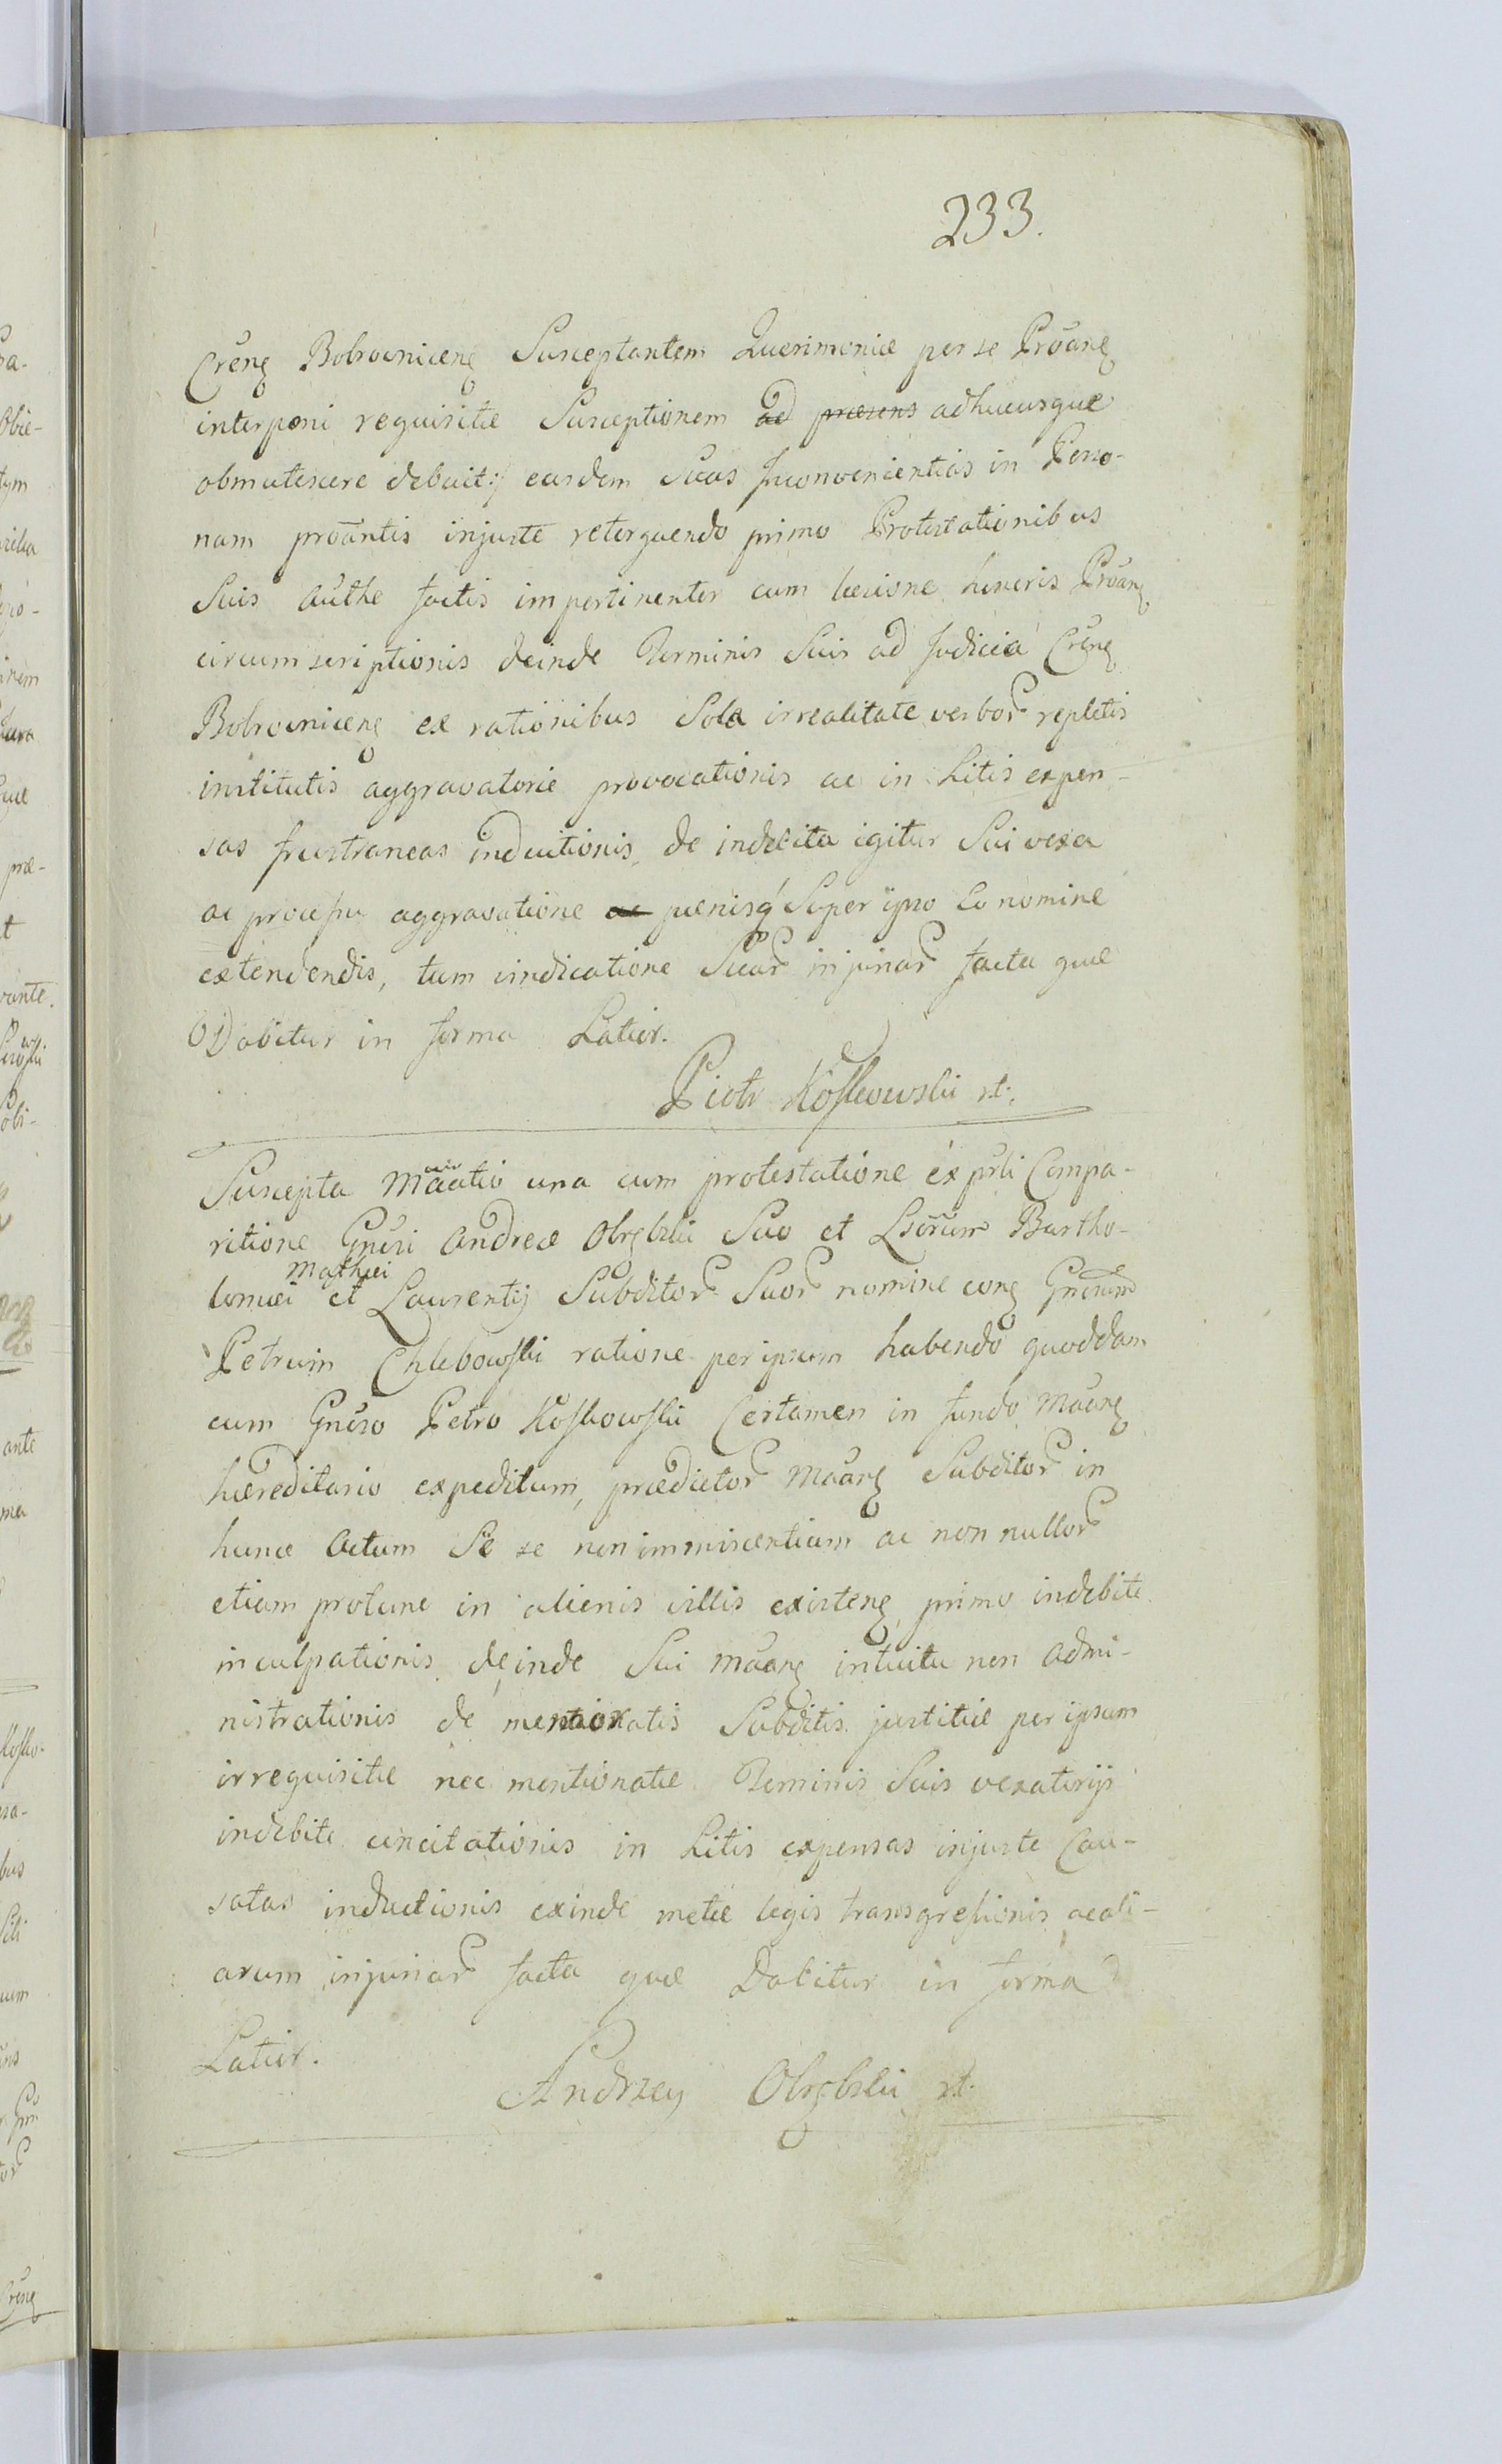 233.
Crēnȩ Bobrovnicenȩ Susceptantem Querimoniæ per se Prōanȩ
interponi requisitæ Susceptionem ad præsens adhucusque
obmutescere debuit: easdem Suas Inconvenientias in Perso-
nam prōantis injuste retorquendo primo Protestationibus
Suis authe factis impertinenter cum læsione honoris Prōanȩ
circumscriptionis deinde Terminis Suis ad Judicia Crēnȩ
Bobrovnicenȩ ex rationibus Sola irrealitate verbor repletis
institutis aggravatoriæ provocationis ac in Litis expen-
sas frustraneas inductionis, de indebita igitur Sui vexa
ac processu aggravatione ac pœnisq́ Super ipso Eo nomine
extendendis, tum vindicatione Suar injuriar facta quæ
Dabitur in forma Latior.
Piotr Koskowski rt.
Suscepta Māatio una cum protestatione ex pn̄li Compa-
ritione Gn̄osi Andreæ Obrębski Suo et Lsōrum Bartho-
Mathei
lomæi et Laurentij Subditor Suor nomine conȩ Gnōsum
Petrum Chlebowski ratione per ipsum habendo quoddam
cum Gnōso Petro Koskowski Certamen in fundo Māanȩ
hæreditario expeditum, prædictor Māanȩ Subditor in
hunc Actum Se se non immiscentium ac non nullor
etiam protunc in alienis villis existenȩ primo indebite
inculpationis deinde Sui māanȩ intuitu non admi-
nistrationis de mentionatis Subditis justitiæ per ipsum
irrequisitæ nec mentionatæ Terminis Suis vexatorijs
indebite concitationis in Litis expensas injuste Cau-
satas inductionis exinde metæ legis transgressionis acali-
arum injuriar facta quæ Dabitur in forma
Latior.
Andrzey Obrębski rt.